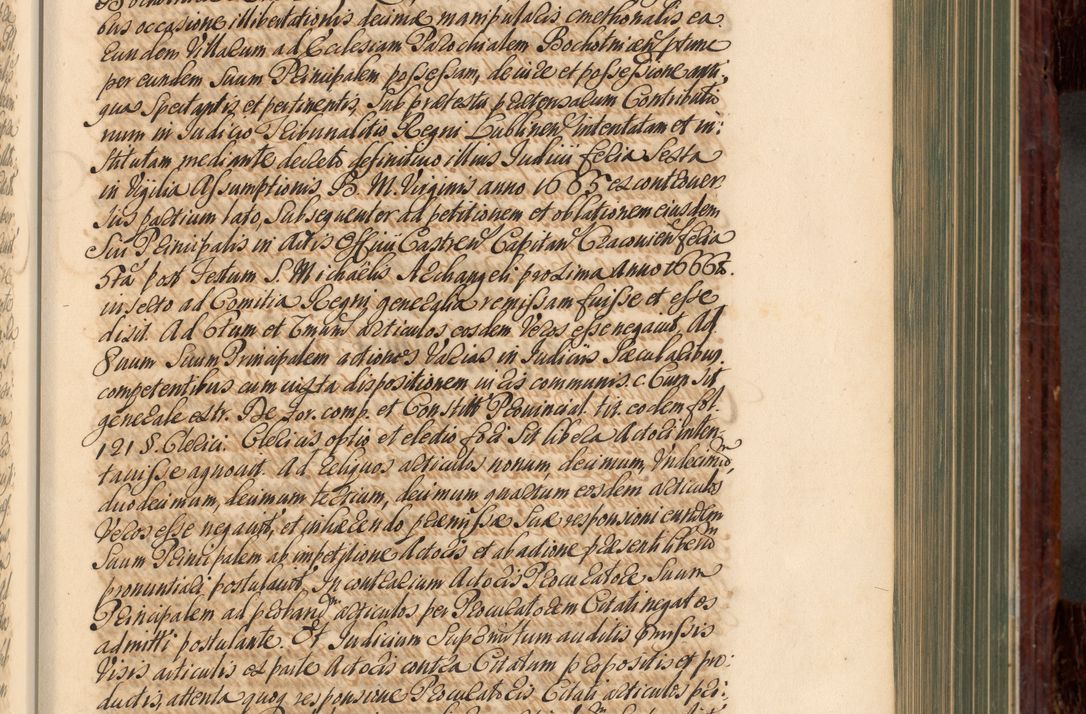 bus occasione illibertationis decimæ manipulalis cmethonalis ea
Eundem Villarum ad Ecclesiam Parochialem Bochotnicen
per eundem Suum Principalem possessam, de iure et possessione anti-
qua Spectantis, et pertinentis, Sub prætextu prætensarum Contributio
num in Iudicio Tribunalitio Regni Lublinen intentatam et in:
stitutam mediante decreto definitiuo illius Iudicii feria Sexta
in Vigilia Assumptionis B. M. Virginis anno 1665 ex controuer
siis partium lato, Subsequenter ad petitionem et oblationem eiusdem
Sui Principalis in Actis Officii Castren Capitan Cracouien feria
5ta post Festum S. Michaëlis Archangeli proxima Anno 1666.
inserto ad Comitia Regni generalia remissam fuisse et esse
dixit. Ad 6tum et 7mum articulos eosdem Veros esse negauit, Ad
8uum Suum Principalem actiones Varias in Iudiciis Sæcularibus
competentibus cum iuxta dispositionem iuris communis. c Cum sit
generale extr. De For. comp. et Constitt Prouincial. tit. eodem fol.
121 §. Clerici. Clericis optio et electio fori Sit libera Actori inten-
tauisse agnouit. Ad reliquos articulos nonum, decimum, Undecimū,
duodecimum, decimum tertium, decimum quartum eosdem articulos
Veros esse negauit, et inhærendo præmissæ Suæ responsioni eundem
Suum Principalem ab impetitione Actoris et ab actione præsenti liberū
pronuntiari postulauit. In contrarium Actoris Procuratore Suum
Principalem ad proband articulos per Procuratorem Citati negatos
admitti postulante. Et Iudicium Supremum auditis præmissis
Visis articulis ex parte Actoris contra Citatum propositis et pro:
ductis, attenta quoq responsione Procuratoris Citati articulos præ: